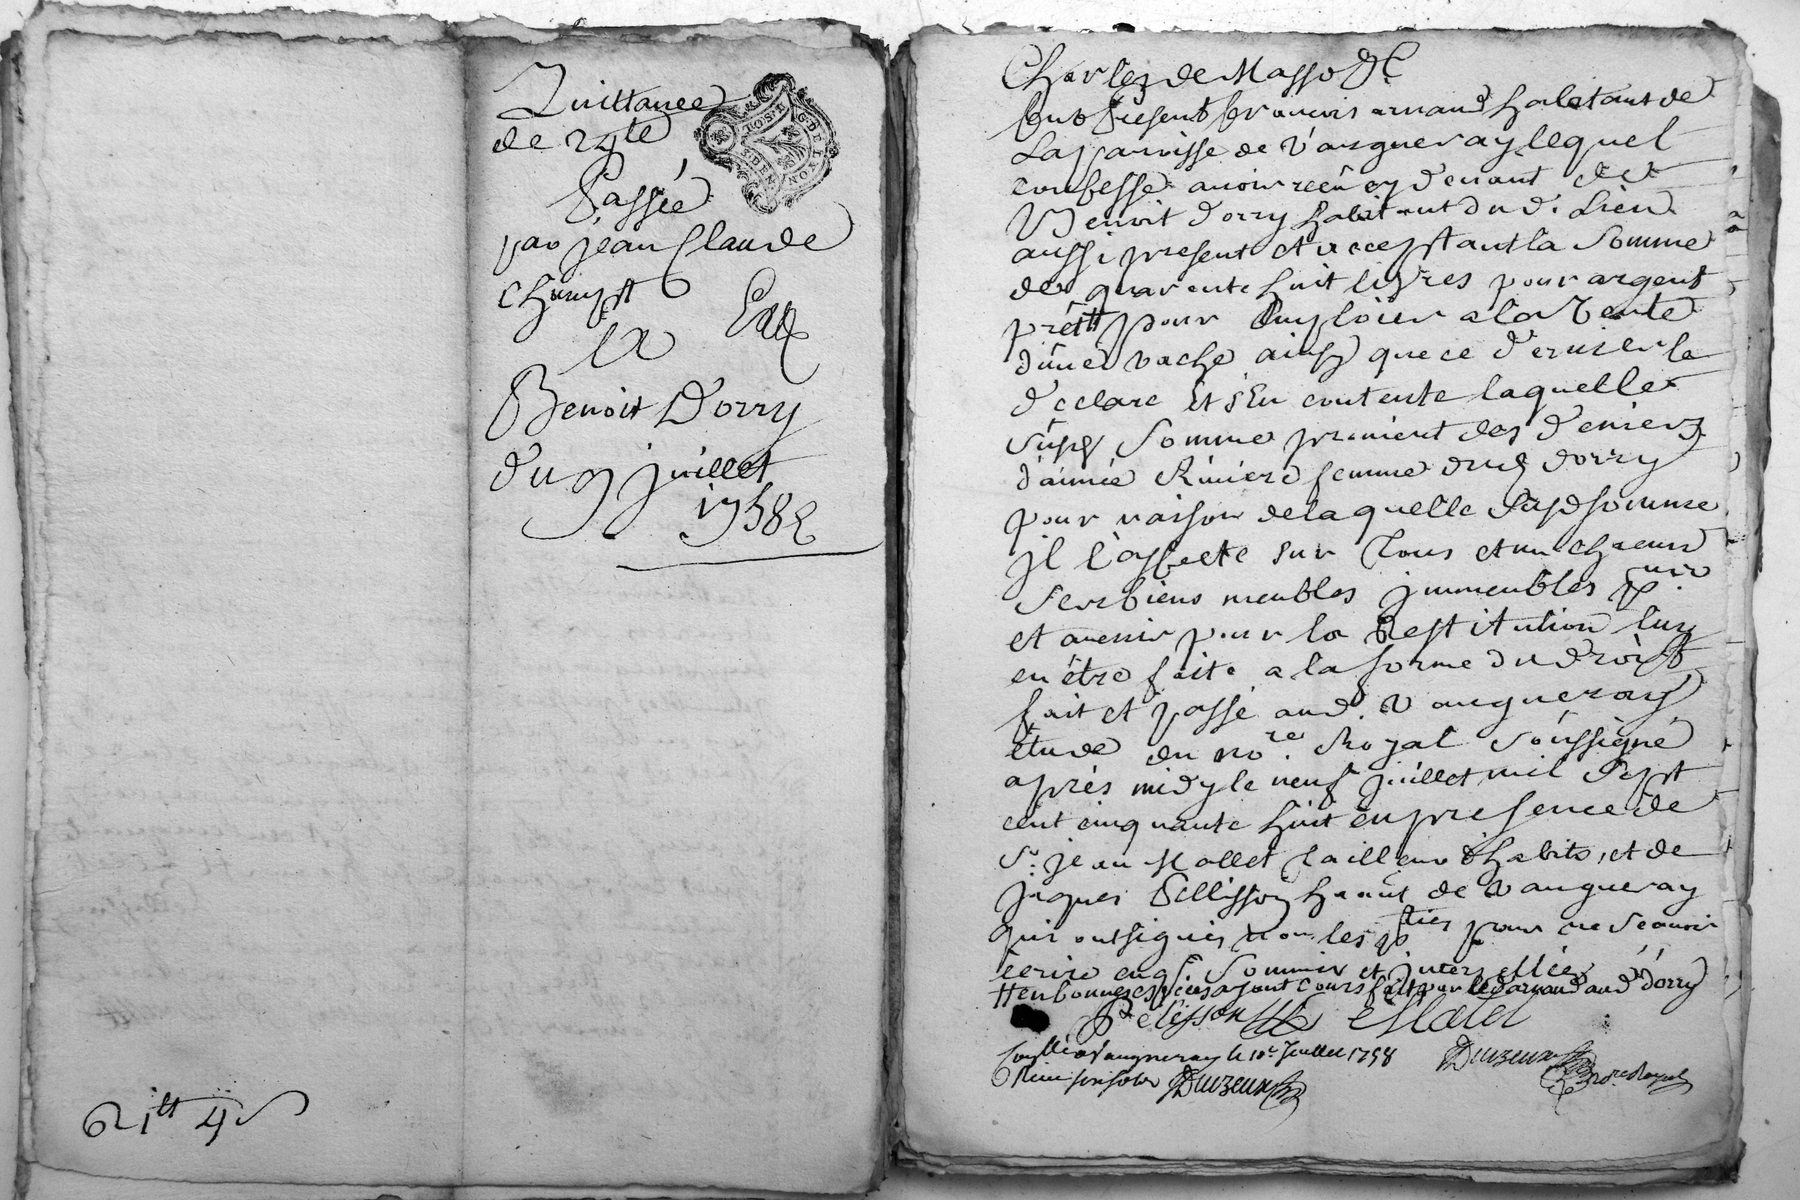 Quittance
de 24lt
Passée
par jean Claude
à
Benoit Dorry
du 9 juillet
1758
GDE LYON
Charles de Masso &c
fut présent francois arnaud habitant de
La parroisse de Vaugneray lequel
confesse avoir reçû cy devant de
Benoit Dorry habitant dud. Lieu
aussi present et acceptant la Somme
de quarente huit livres pour argent
prêté pour Employer a la Vente
d'une vache ainsy que ce dernier le
declare Et s'En contente laquelle
susd Somme provient des deniers
d'aimée Riviere femme dud dorry
pour raison de laquelle susd somme
il l'affecte sur Tous et un chacun
ses biens meubles immeubles pnts
et avenir pour la Restitution luy
en être faite a la forme du droit,
fait et passé aud. Vaugneray
étude du nore. Royal soussigné
après midy le neuf juillet mil sept
cent cinquante huit en presence de
Sr. jean Mallet Tailleur d'habits, et de
jaques Pellisson hant de Vaugneray
qui ont signés non les parties pour ne sçavoir
écrire enqs. Sommés et interpellées
tt en bonnes especes ayant cours led arnaud aud dorry
Pelisson Malet
à Vaugneray le 10e Juillet 1758
Reçu six sols
nore Royal